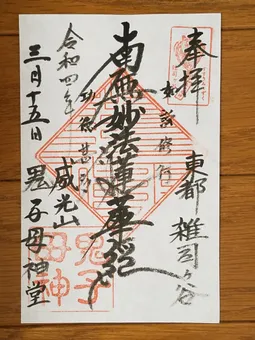 奉拝
東都 雑司ヶ谷
南無妙法蓮華経
令和四年
威光山
三月十五日 鬼子母神堂
鬼子
母神